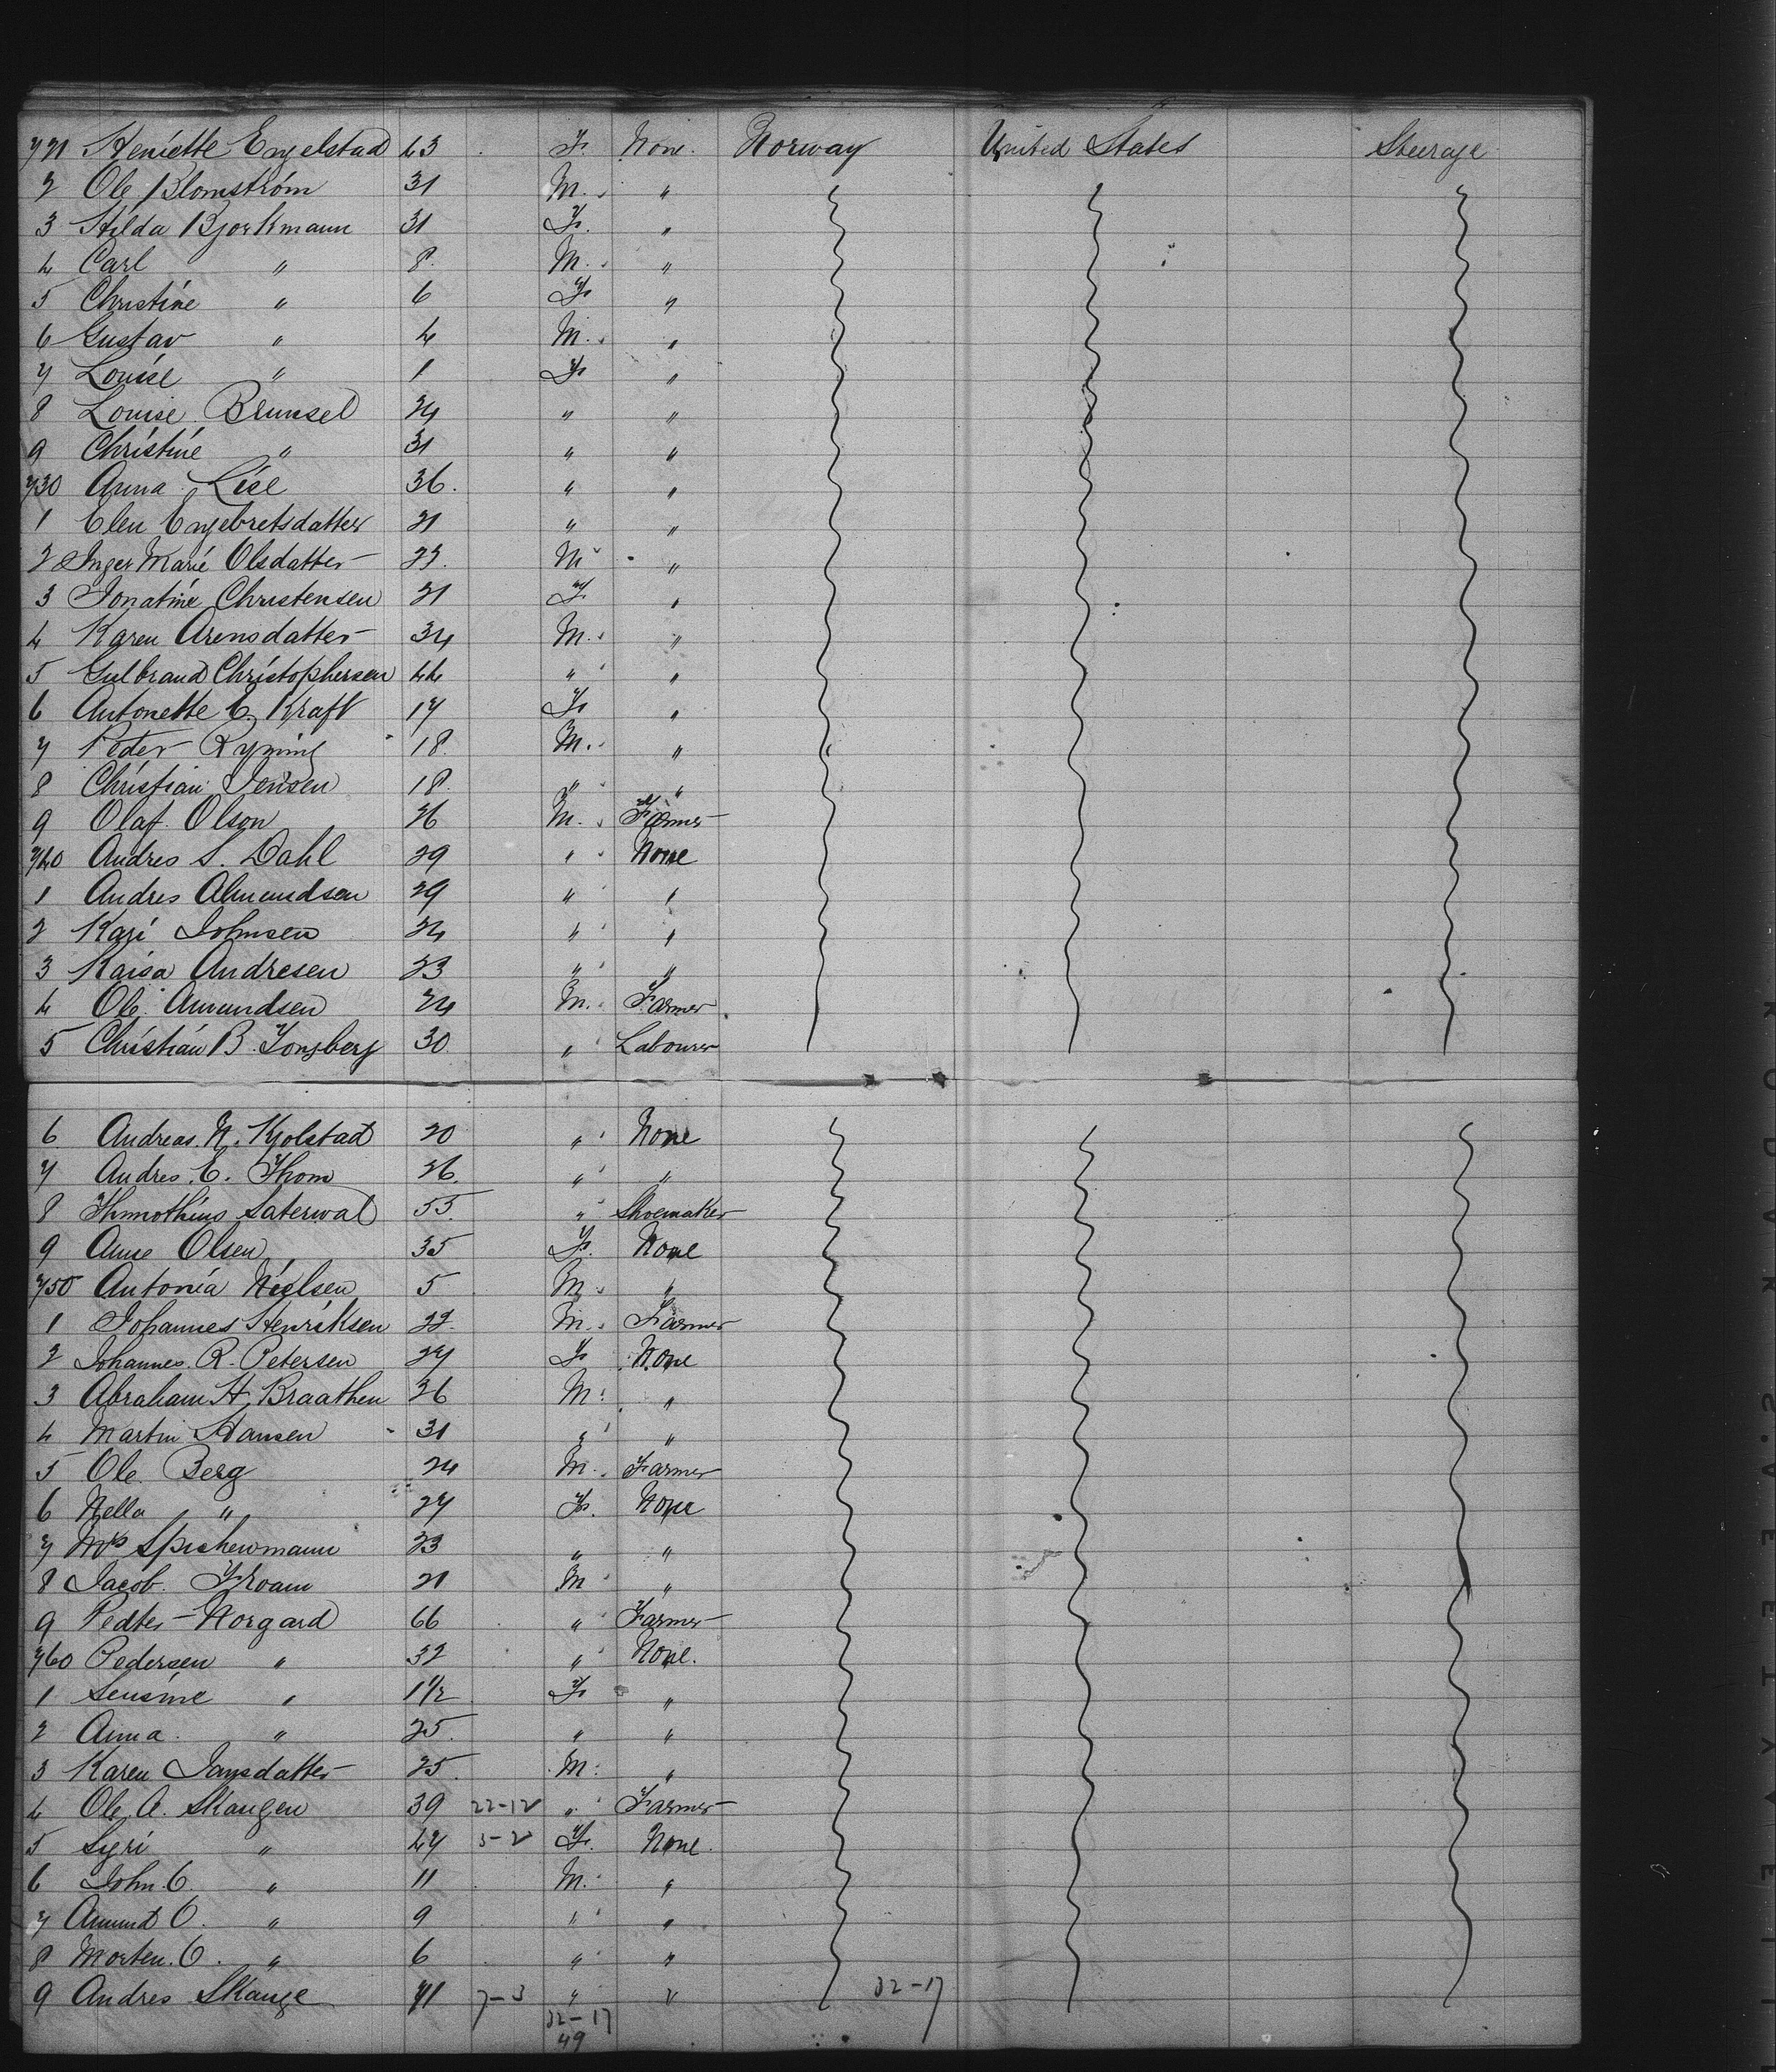 721 Heniette Engelstad 43 F. None. Norway United States Steerage
2 Ole Blomström 31 M. "
3 Hilda Bjorkmann 31 F. "
4 Carl " 8. M. "
5 Christine " 6 F "
6 Gustav " 4 M. "
7 Louise " 1 F "
8 Louise Brunsel 24 " "
9 Christine " 31 " "
730 Anna Lise 36. " "
1 Elen Engebretsdatter 21 " "
2 Inger Marie Olsdatter 23. M "
3 Jonatine Christensen 21 F. "
4 Karen Arensdatter 34 M. "
5 Gulbrand Christophersen 44 " "
6 Antonette C. Kraft 17 F "
7 Peter Ryning 18. M. "
8 Christian Jensen 18. " "
9 Olaf Olson 26 M. Farmer
740 Andres S. Dahl 29 " None
1 Andres Almundsen 29 " "
2 Kari Johnsen 24 " "
3 Kaisa Andresen 23 " "
4 Ole Amundsen 24 M. Farmer
5 Christian B. Tonsberg 30. " Labourer
6 Andreas. N. Kjolstad 20 " None
7 Andres. E. Thom 26. " "
8 Thimothius Saterwal 55. " Shoemaker
9 Anne Olsen 35 F. None
750 Antonia Nielsen 5 M. "
1 Johannes Henriksen 22. M. Farmer
2 Johannes. R. Petersen 27 F None
3 Abraham H. Braathen 26 M. "
4 Martin Hansen 31 " "
5 Ole Berg 24 M. Farmer
6 Nella " 27 F. None
7 Mrs 23 " "
8 Jacob 21 M "
9 Pedter Norgard 66 " Farmer
760 Pedersen " 32 " None.
1 Sensine " 1 1/2 F "
2 Anna " 25. " "
3 Karen Jansdatter 25. M. "
4 Ole A. Skaugen 39 22-12 " Farmer
5 Syri " 47 5-2 F. None.
6 John O. " 11 M. "
7 Amund O. " 9 " "
8 Morten. O. " 6 " "
9 Andres Skauge 71 7-3 " " 32-17
32-17
49
KODAK SAFETY